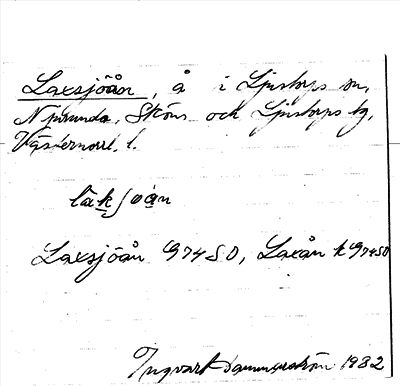 Laxsjöån, å i Ljustorps sn,
Njurunda, Sköns och Ljustorps tg,
Västernorrl. l.
läksjöa̤n
Laxsjöån G974SO, Laxån k G974SO
Ingvart Dammeström 1932